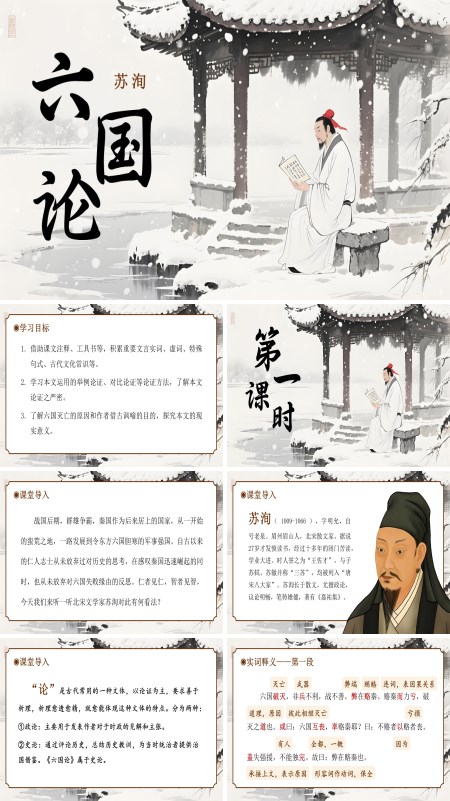 六国论
苏洵
学习目标
1. 借助课文注释、工具书等，积累重要文言实词、虚词、特殊
句式、古代文化常识等。
2. 学习本文运用的举例论证、对比论证等论证方法，了解本文
论证之严密。
3. 了解六国灭亡的原因和作者借古讽喻的目的，探究本文的现
实意义。
第一课时
课堂导入
战国后期，群雄争霸，秦国作为后来居上的国家，从一开始
的蛮荒之地，一路发展到令东方六国胆寒的军事强国。自古以来
的仁人志士从未放弃过对历史的思考，在感叹秦国迅速崛起的同
时，也从未放弃对六国失败缘由的反思。仁者见仁，智者见智，
今天我们来听一听北宋文学家苏洵对此有何看法？
课堂导入
苏洵（1009-1066），字明允，自
号老泉，眉州眉山人，北宋散文家。据说
27岁才发愤读书，经过十多年的闭门苦读，
学业大进，时人誉之为“王佐才”。与子
苏轼、苏辙并称“三苏”，均被列入“唐
宋八大家”。苏洵长于散文，尤擅政论，
议论明畅，笔势雄健，著有《嘉祐集》。
课堂导入
“论”是古代常用的一种文体，以论证为主，要求善于
析理，析理愈透愈精，就愈能体现这种文体的特点。分为两种：
①政论：主要用于发表作者对于时政的见解和主张。
②史论：通过评论历史，总结历史教训，为当时统治者提供治
国借鉴。《六国论》属于史论。
实词释义——第一段
灭亡 武器 弊端 贿赂 连词，表因果关系
六国破灭，非兵不利，战不善，弊在赂秦。赂秦而力亏，破
道理，原因 彼此相继灭亡 亏损
灭之道也。或曰：六国互丧，率赂秦耶？曰：不赂者以赂者丧。
有人 全都，一概 因为
盖失强援，不能独完。故曰：弊在赂秦也。
承接上文，表示原因 形容词作动词，保全